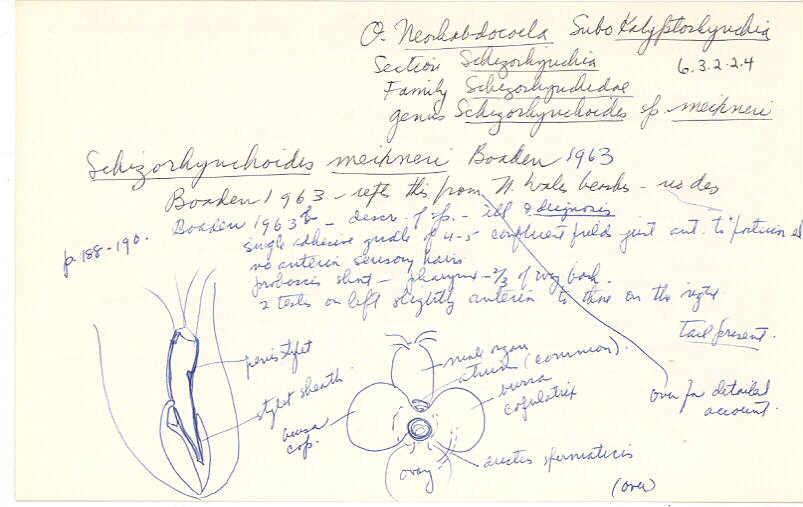 O. Neorhabdocoela Subo Kalyptorhynchia
Section Schizorhynchia 6.3.2.2.4
Family Schizorhynchidae
genus Schizorhynchoides sp. meixneri
Schizorhynchoides meixneri Boaden 1963
Boaden 1963 - refs this from N. Wales beaches - no des
p. 188-190. Boaden 1963b - descr. of sp. - ill & diagnosis
single adhesive girdle of 4-5 confluent fields just ant. to posterior
no anterior sensory hairs
proboscis short - pharynx - 2/3 of way back.
2 testes on left slightly anterior to those on the right
tail present.
penis stylet
stylet sheath
male organ
atrium (common).
bursa
copulatrix
bursa
cop.
ovary
ductus spermaticus
over for detailed
account.
(over)